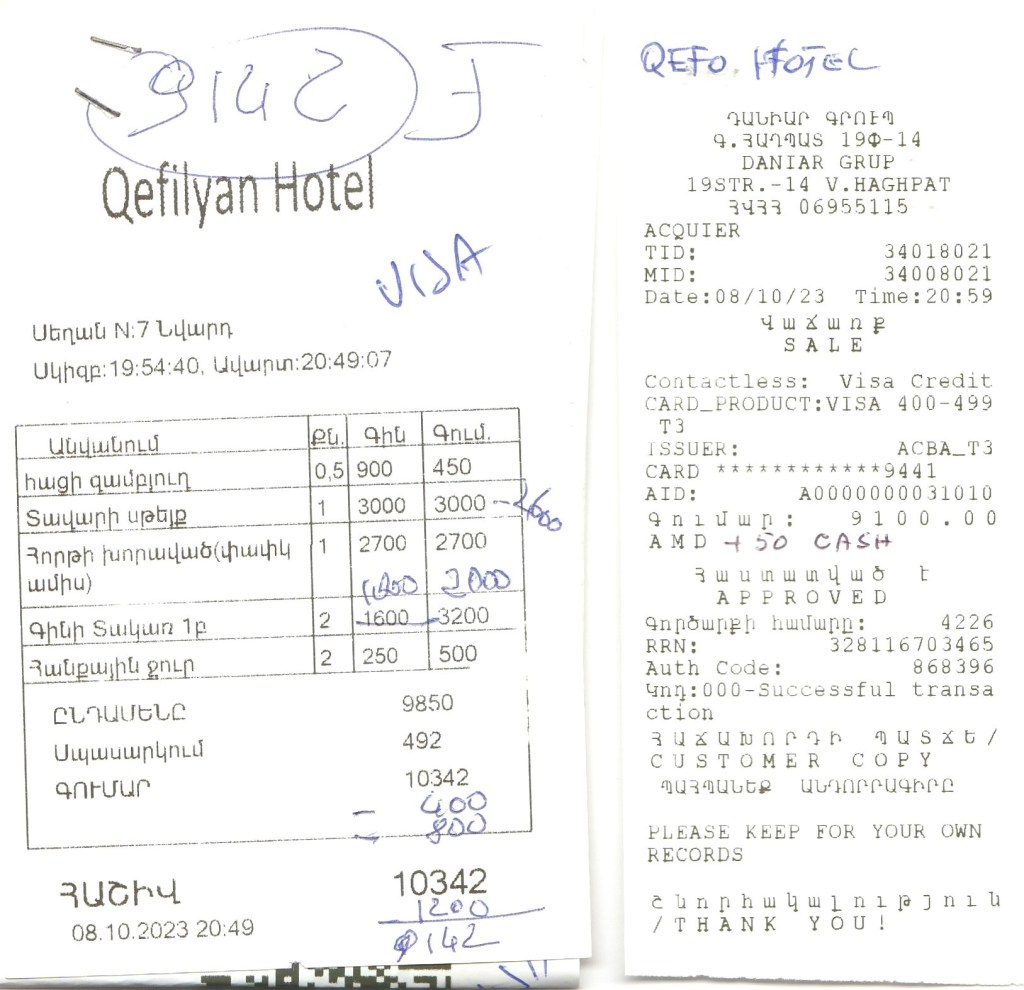 9142 F
Qefilyan Hotel
VISA
Սեղան N:7 Նվարդ
Սկիզբ:19:54:40, Ավարտ:20:49:07
Անվանում Քն. Գին Գում.
հացի զամբյուղ 0,5 900 450
Տավարի սթեյք 1 3000 3000 - 2600
Հորթի խորոված(փափկ 1 2700 2700
ամիս)
2000
Գինի Տակառ 1բ 2 1600 3200
Հանքային ջուր 2 250 500
ԸՆԴԱՄԵՆԸ 9850
Սպասարկում 492
ԳՈՒՄԱՐ 10342
- 400
- 800
ՀԱՇԻՎ 10342
1200
08.10.2023 20:49
9142
QEFO. HOTEL
ԴԱՆԻԱՐ ԳՐՈՒՊ
Գ.ՀԱՂՊԱՏ 19Փ-14
DANIAR GRUP
19STR.-14 V.HAGHPAT
ՀՎՀՀ 06955115
ACQUIER
TID: 34018021
MID: 34008021
Date:08/10/23 Time:20:59
Վաճառք
SALE
Contactless: Visa Credit
CARD_PRODUCT:VISA 400-499
T3
ISSUER: ACBA_T3
CARD ************9441
AID: A0000000031010
Գումար: 9100.00
AMD + 50 CASH
Հաստատված է
APPROVED
Գործարքի համարը: 4226
RRN: 328116703465
Auth Code: 868396
Կոդ:000-Successful transa
ction
ՀԱՃԱԽՈՐԴԻ ՊԱՏՃԵ/
CUSTOMER COPY
ՊԱՀՊԱՆԵՔ ԱՆԴՈՐՐԱԳԻՐԸ
PLEASE KEEP FOR YOUR OWN
RECORDS
Շնորհակալություն
/THANK YOU!